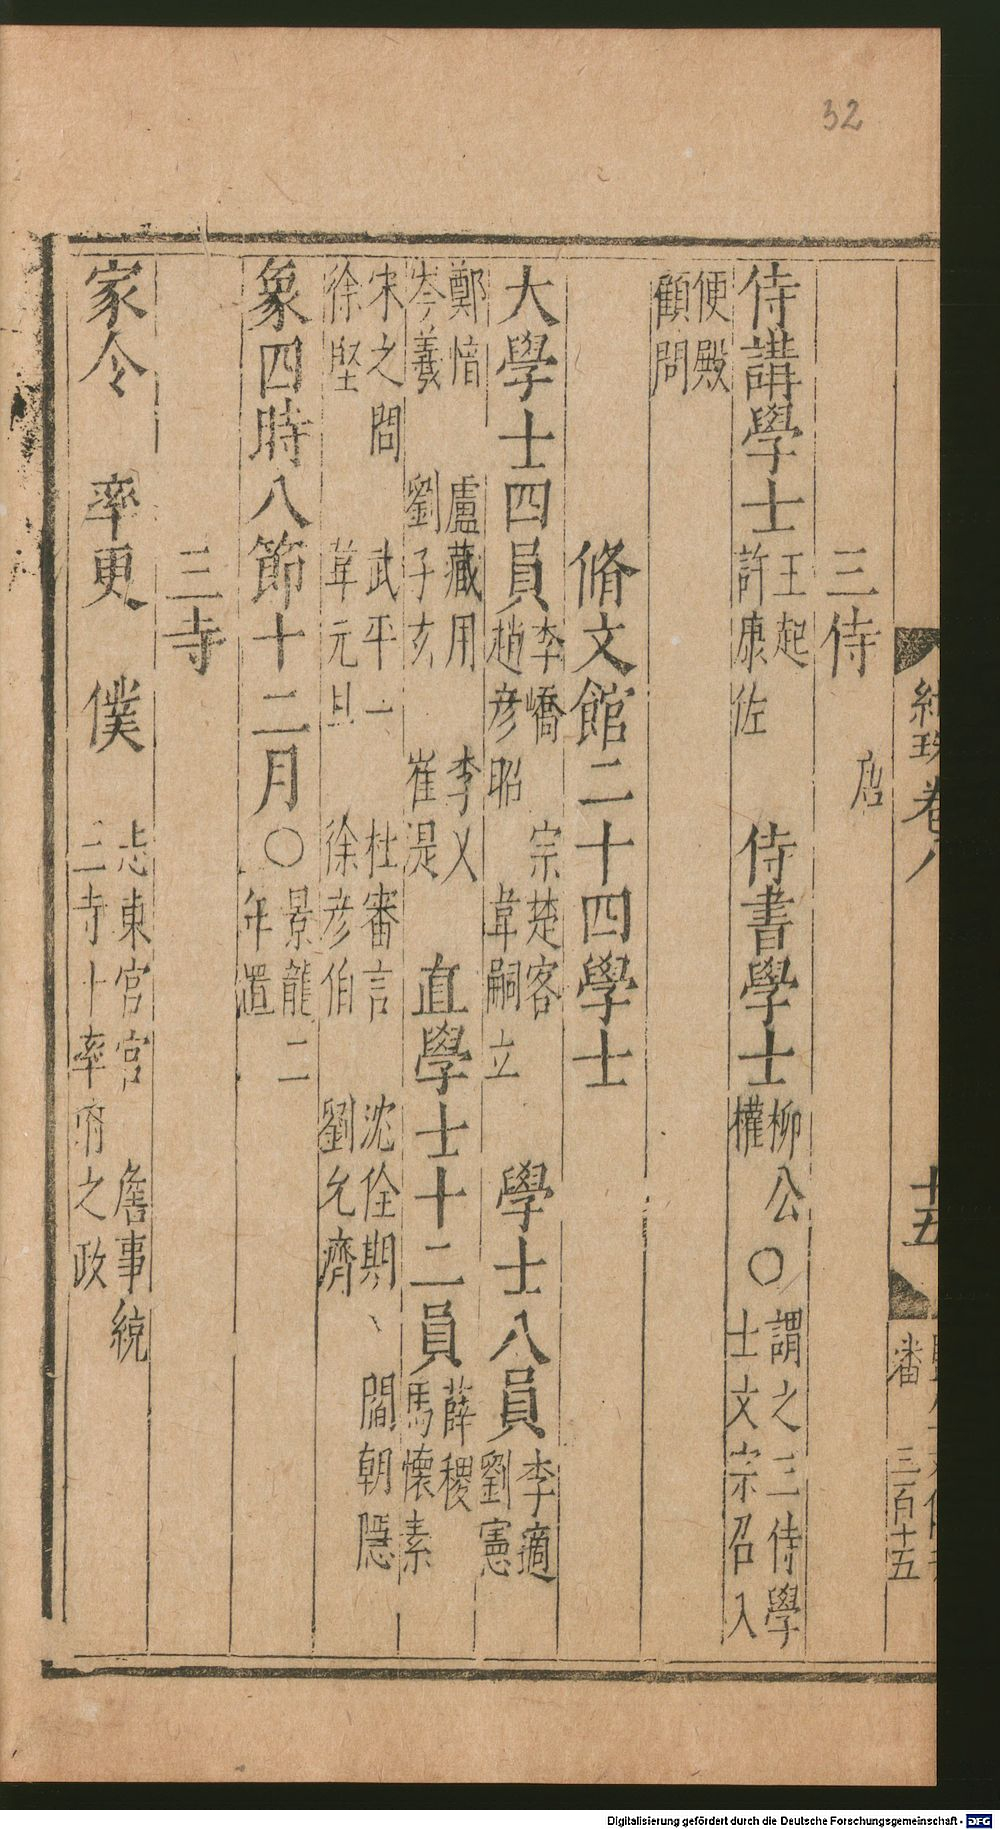 32
三侍 唐
侍講學士 王起 許康佐 侍書學士 柳公權 ○ 謂之三侍學士文宗召入
便殿顧問
脩文館二十四學士
大學士四員 李嶠 趙彥昭 宗楚客 韋嗣立 學士八員 李適 劉憲
鄭愔 岑羲 盧藏用 劉子玄 李乂 崔湜 直學士十二員 薛稷 馬懷素
宋之問 徐堅 武平一 韋元旦 杜審言 徐彥伯 沈佺期 劉允濟 閻朝隱
象四時八節十二月○景龍二年置
三寺
家令 率更 僕 東宮官 詹事統三寺十率府之政
卷八
十五
番 三百十五
Digitalisierung gefördert durch die Deutsche Forschungsgemeinschaft - DFG